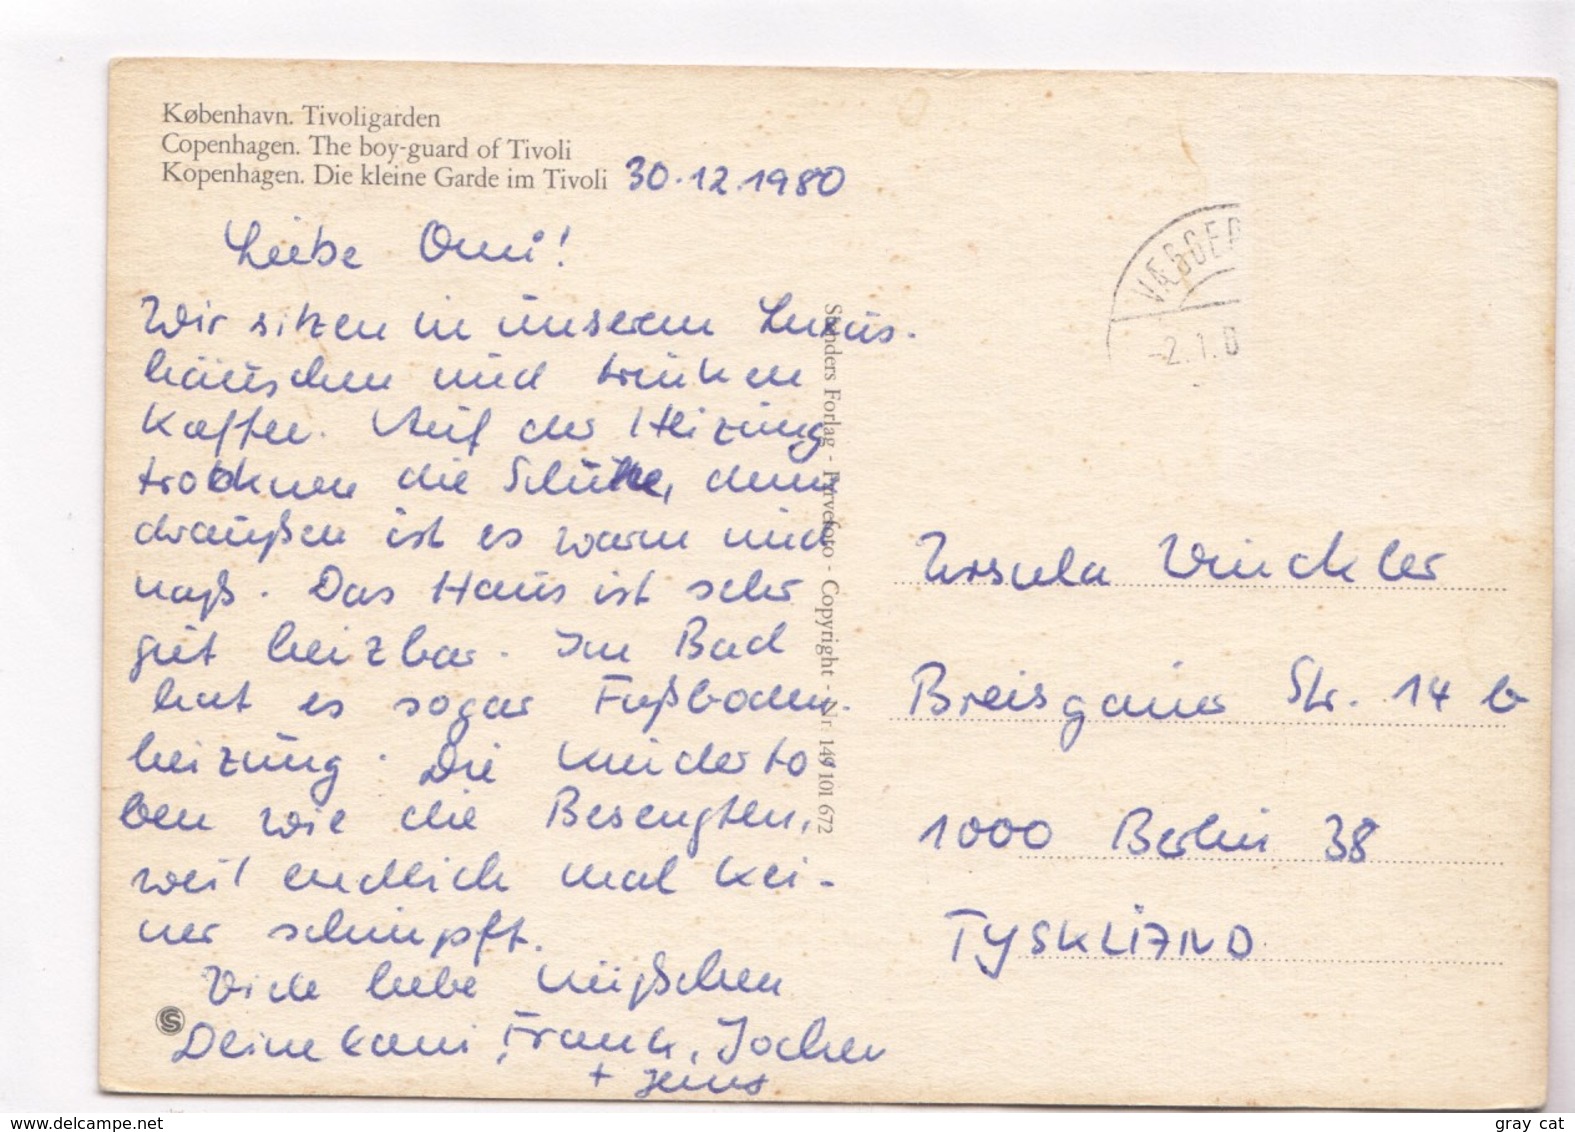 København. Tivoligarden
Copenhagen. The boy-guard of Tivoli
Kopenhagen. Die kleine Garde im Tivoli 30.12.1980
Liebe Omi!
Wir sitzen in unserem Luxus-
häuschen und trinken
Kaffee. Auf der Heizung
trocknen die Schuhe, denn
draußen ist es warm und
naß. Das Haus ist sehr
gut heizbar. Im Bad
hat es sogar Fußboden-
heizung. Die Kinder to
ben wie die Besengten,
weil endlich mal kei-
ner schimpft.
Viele liebe Küßchen
Deine Frank, Jochen
+ Jens
Stenders Forlag - Farvefoto - Copyright - Nr 149 101 672
VÆGGER
-2.1.8
Ursula Winckler
Breisgauer Str. 14 b
1000 Berlin 38
TYSKLAND
S
www.delcampe.net
gray_cat